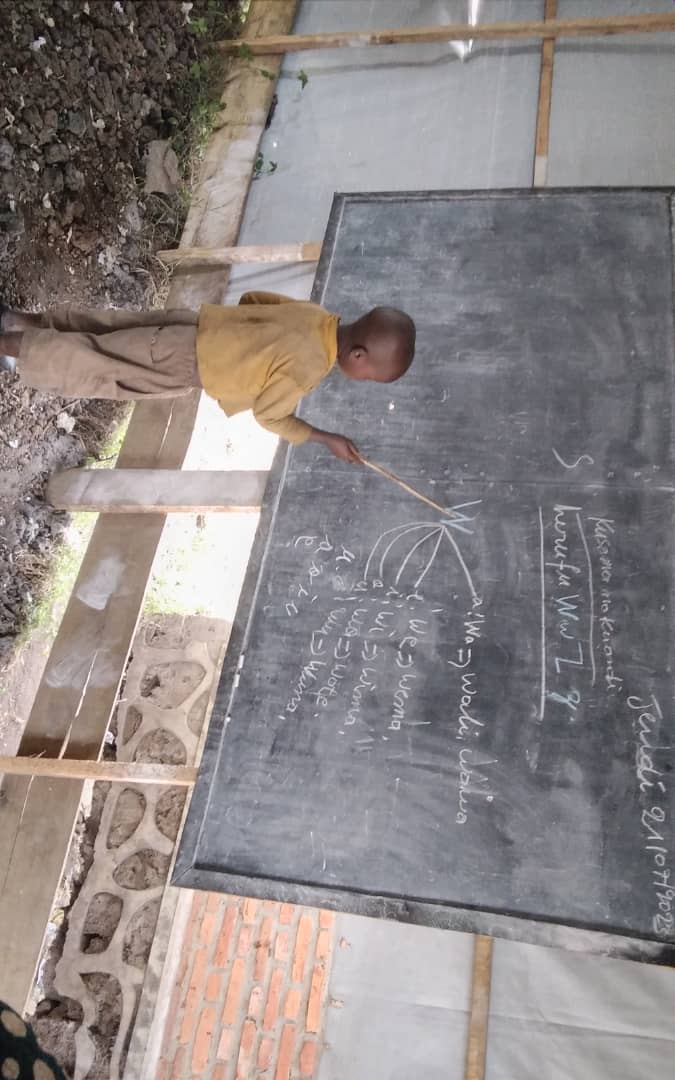 Jeudi 21/07/2023
Kusoma na Kuandi
S herufu Ww Z z.
W
a: Wa => Wali, Wawa
e: We => Wema,
i: Wi => Wima,
o: Wo => Wote.
u: Wu => Wuna,
u. e
a o i u
e